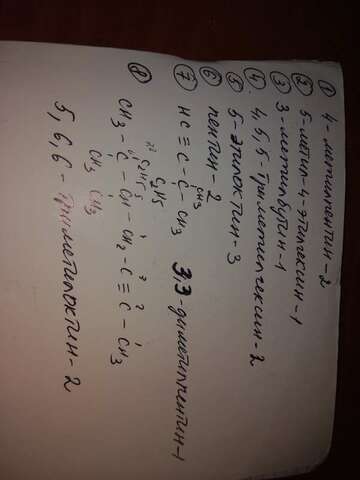 ① 4-метилпентин-2
② 5-метил-4-этилгексин-1
③ 3-метилбутин-1
④ 4,5,5-триметилгексин-2
⑤ 5-этилоктин-3
⑥ пентин-2
CH3
⑦ HC≡C-C-CH3 3,3-диметилпентин-1
C2H5
⑧ C2H5
CH3-C-CH-CH2-C≡C-CH3
CH3 CH3
5,6,6-триметилоктин-2